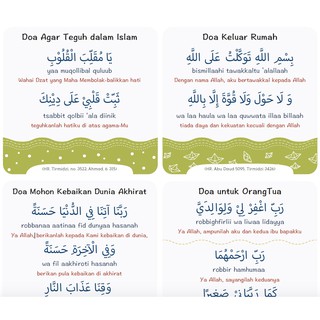 Doa Agar Teguh dalam Islam
يَا مُقَلِّبَ الْقُلُوْبِ
yaa muqollibal quluub
Wahai Dzat yang Maha Membolak-balikkan hati
ثَبِّتْ قَلْبِيْ عَلَى دِيْنِكَ
tsabbit qolbii 'ala diinik
teguhkanlah hatiku di atas agama-Mu
(HR. Tirmidzi, no. 3522, Ahmad, 4: 302)
Doa Keluar Rumah
بِسْمِ اللَّهِ تَوَكَّلْتُ عَلَى اللَّهِ
bismillaahi tawakkaltu 'alallaah
Dengan nama Allah, aku bertawakkal kepada Allah
وَ لَا حَوْلَ وَلَا قُوَّةَ إِلَّا بِاللَّهِ
wa laa haula wa laa quwwata illaa billah
tiada daya dan kekuatan kecuali dengan Allah
(HR. Abu Daud 5095, Tirmidzi 3426)
Doa Mohon Kebaikan Dunia Akhirat
رَبَّنَا آتِنَا فِي الدُّنْيَا حَسَنَةً
robbanaa aatinaa fid dunyaa hasanah
Ya Allah, berikanlah kepada Kami kebaikan di dunia,
وَفِي الْآخِرَةِ حَسَنَةً
wa fil aakhiroti hasanah
berikan pula kebaikan di akhirat
وَقِنَا عَذَابَ النَّارِ
Doa untuk OrangTua
رَبِّ اغْفِرْ لِيْ وَلِوَالِدَيَّ
robbighfirlii wa liwaa lidayya
Ya Allah, ampunilah aku dan kedua ibu bapakku
رَبِّ ارْحَمْهُمَا
robbir hamhumaa
Ya Allah, sayangilah keduanya
كَمَا رَبَّيَانِيْ صَغِيْرًا